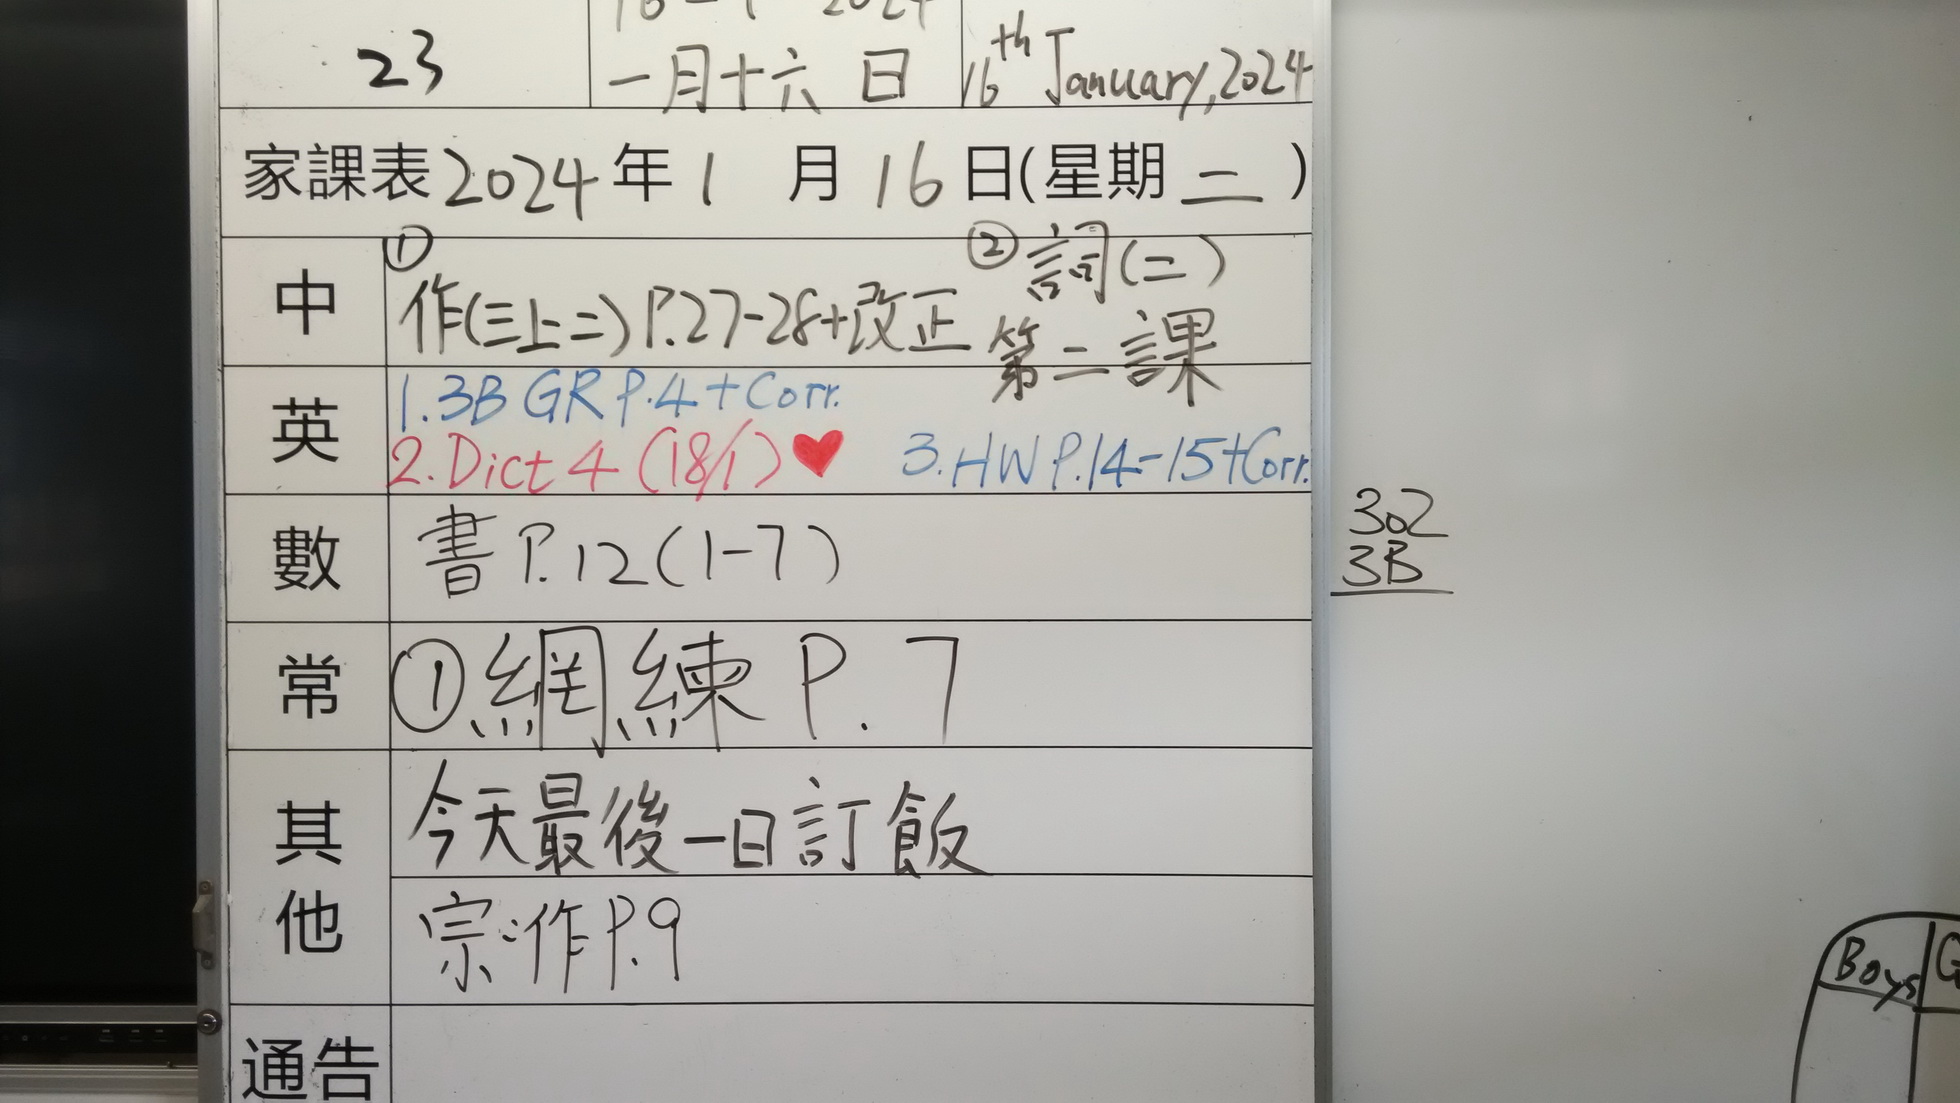 23
16-1-2024
一月十六日
16th January, 2024
家課表 2024 年 1 月 16 日(星期 二 )
中
① 作(三上二) P.27-28+改正
② 詞(二)
第二課
英
1. 3B GR P.4 + Corr.
2. Dict 4 (18/1) ♥
3. HW P.14-15+Corr.
數
書 P.12 (1-7)
常
① 網練 P. 7
其他
今天最後一日訂飯
宗:作 P.9
通告
302
3B
Boys